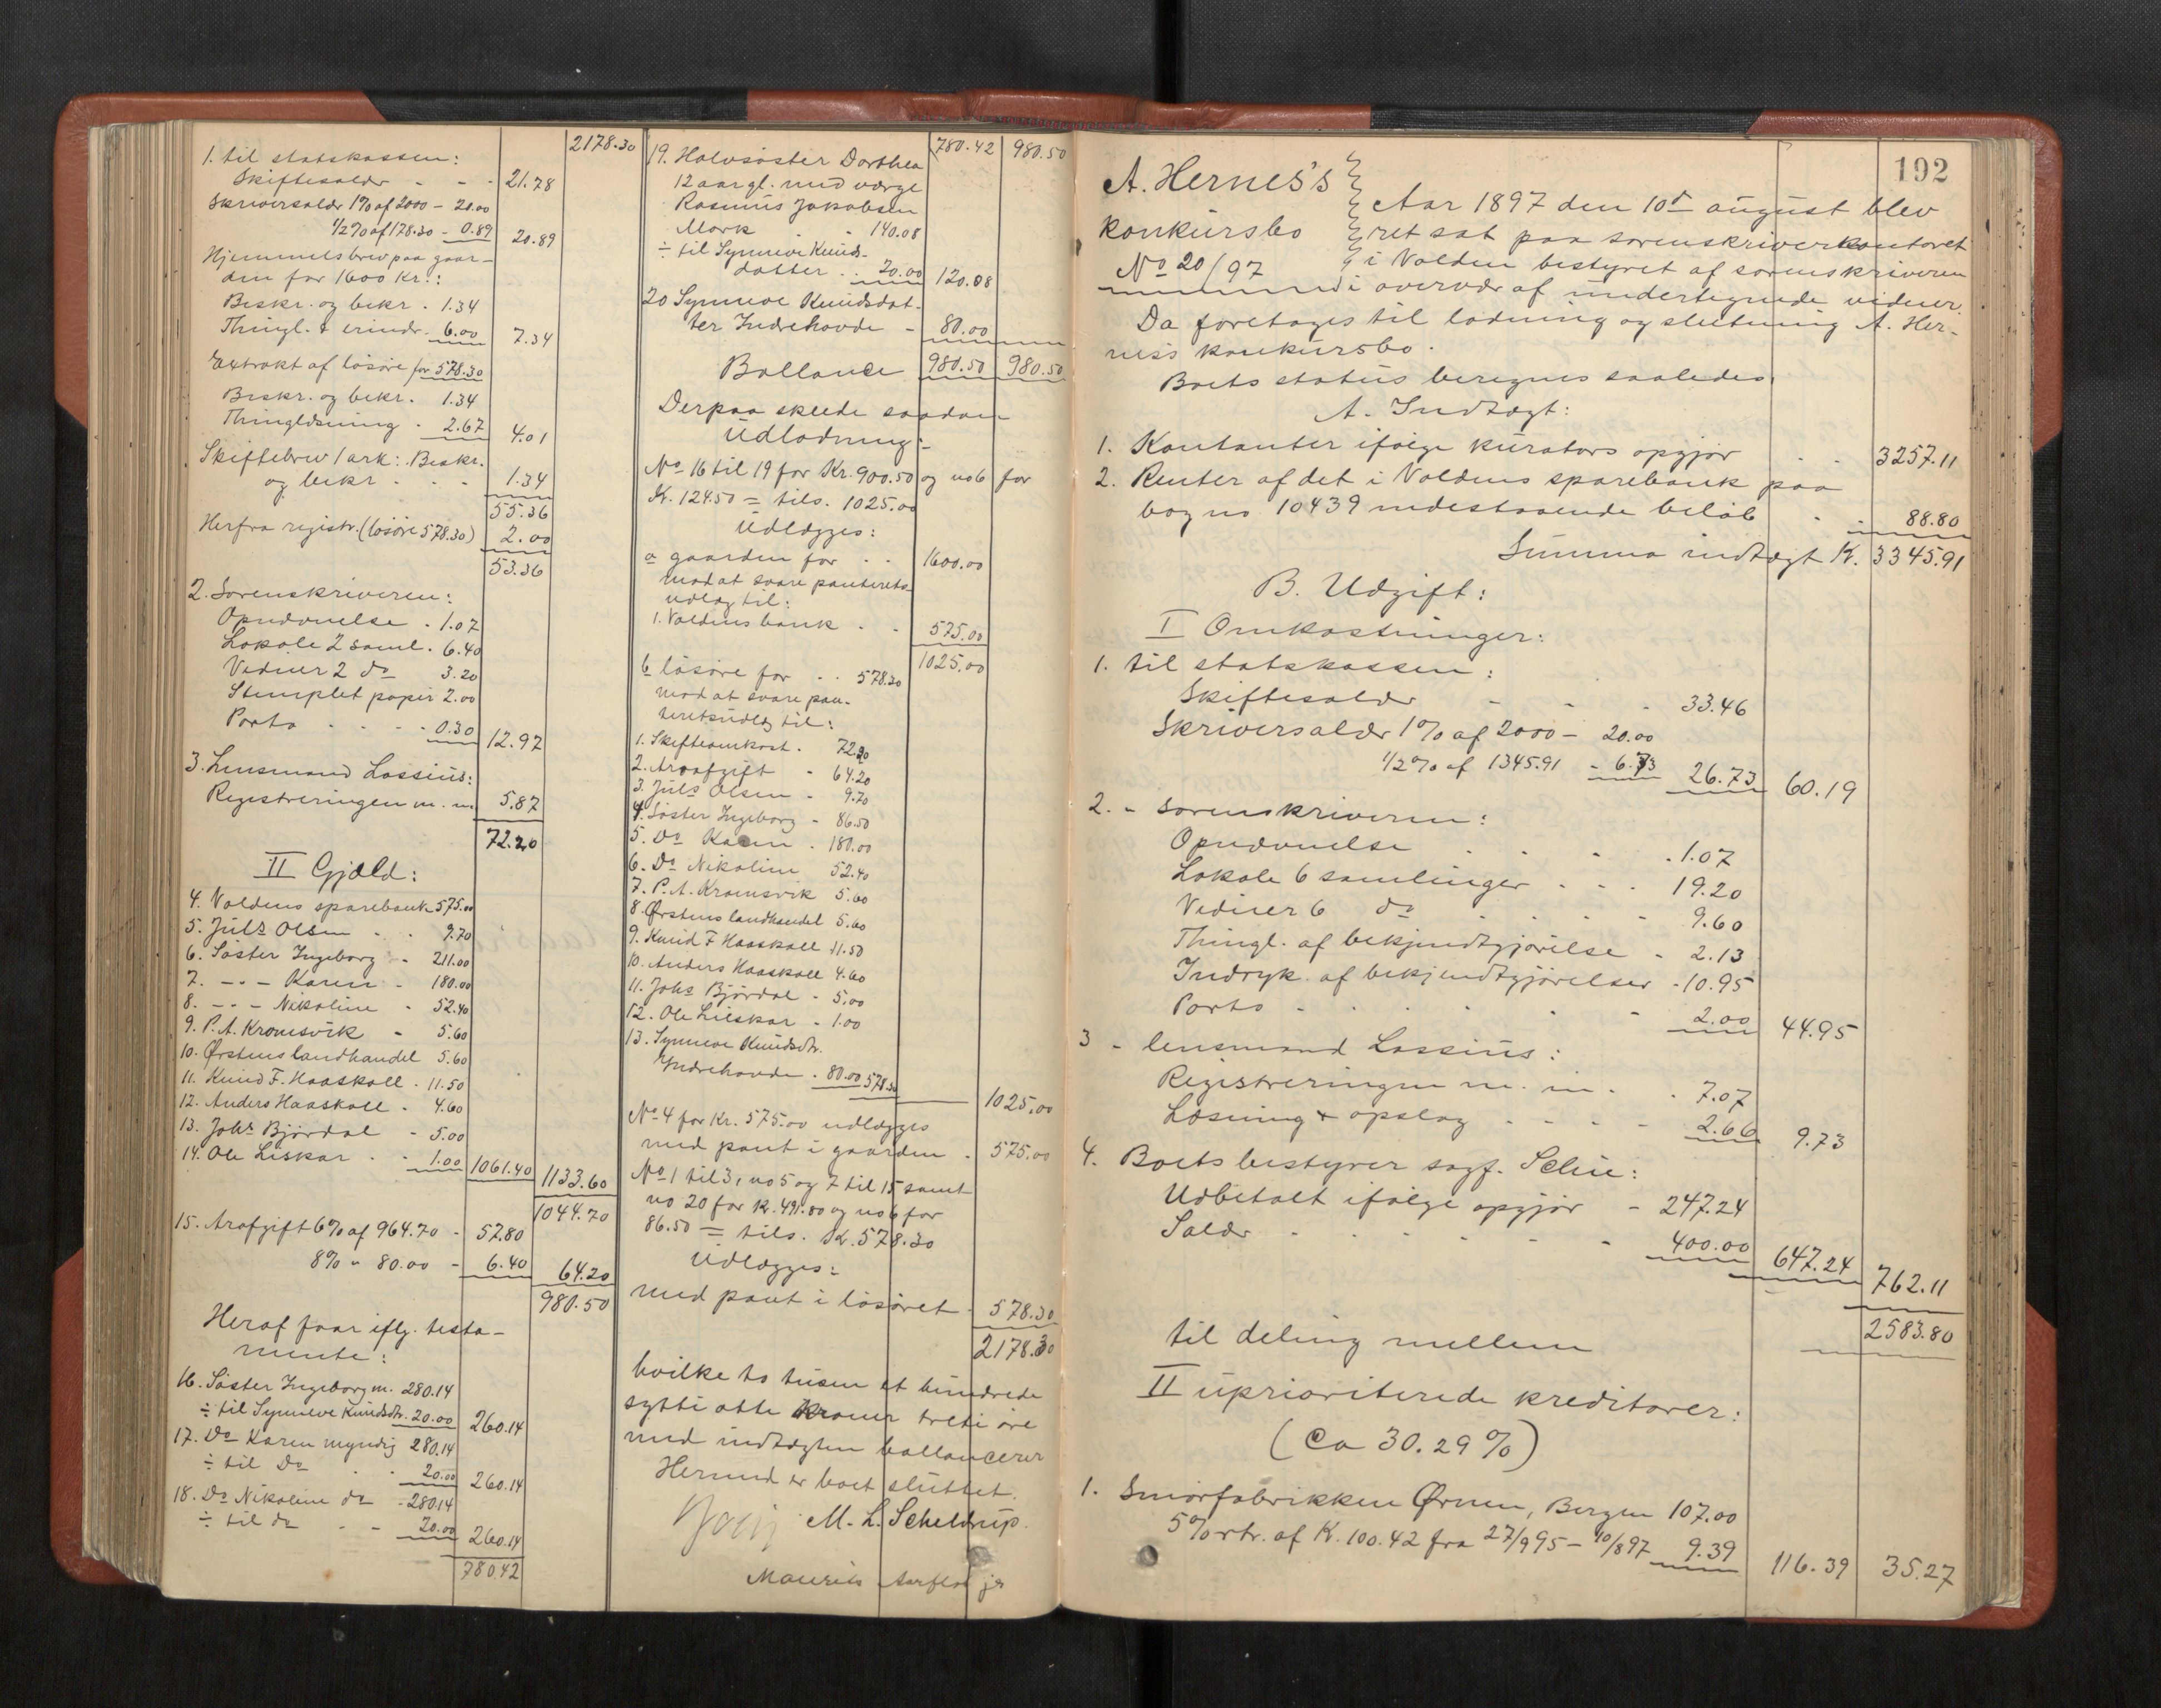 2178.30
1. til statskassen:
Skiftesalær - - - 21.78
Skriversalær 1% af 2000 - 20.00
1/2% af 178.30 - 0.89 20.89
Hjemmelsbrev paa gaar-
den for 1600 Kr.:
Beskr. og bekr. 1.34
Thingl. & erindr. 6.00 7.34
Extrakt af løsøre for 578.30
Beskr. og bekr. 1.34
Thinglæsning - 2.67 4.01
Skiftebrev 1 ark: Beskr.
og bekr - - - 1.34
55.36
Herfra registr. (løsøre 578.30) 2.00
53.36
2. Sorenskriveren:
Opnævnelse - 1.07
Lokale 2 saml. 6.40
Vidner 2 do 3.20
Stemplet papir 2.00
Porto - - - 0.30 12.97
3. Lensmand Lossius:
Registreringen m. m 5.87
72.20
II Gjæld:
4. Voldens sparebank 575.00
5. Juls Olsen - - 9.70
6. Søster Ingeborg - 211.00
7. -"- Karen - 180.00
8. -"- Nikoline - 52.40
9. P. A. Kromsvik - 5.60
10. Ørstens landhandel 5.60
11. Knud F. Haaskoll - 11.50
12. Anders Haaskoll - 4.60
13. Johs Bjørdal - 5.00
14. Ole Liskar - - 1.00 1061.40 1133.60
1044.70
15. Arafgift 6% af 964.70 - 57.80
8% " 80.00 - 6.40 64.20
980.50
Heraf faar iflg. testa-
mente:
16. Søster Ingeborg m. 280.14
÷ til Synneve Knudsdtr. 20.00 260.14
17. Do Karen myndig 280.14
÷ til Do - - 20.00 260.14
18. Do Nikoline do - 280.14
÷ til do - - 20.00 260.14
780.42
780.42 980.50
19. Halvsøster Dorthea
12 aar gl. med værge
Rasmus Jakobsen
Mork - - 140.08
÷ til Synneve Knuds-
datter - - 20.00 120.08
20 Synneve Knudsdat-
ter Indrehovde - 80.00
Ballance 980.50 980.50
Derpaa skeede saadan
Udlodning:
No 16 til 19 for Kr. 900.50 og no 6 for
K. 124.50 = tils. 1025.00
Udlægges:
a gaarden for - - 1600.00
mod at svare panterets-
udlæg til:
1. Voldens bank - - 575.00
1025.00
b løsøre for - - 578.30
mod at svare pan-
teretsudlæg til:
1. Skifteomkost. 72.20
2. Arvafgift - 64.20
3. Juls Olsen - 9.70
4. Søster Ingeborg - 86.50
5. Do Karen - 180.00
6. Do Nikoline 52.40
7. P. A. Kromsvik 5.60
8. Ørstens landhandel 5.60
9. Knud F Haaskoll 11.50
10. Anders Haaskoll 4.60
11. Johs Bjørdal - 5.00
12. Ole Lilskar - 1.00
13. Synneve Knudsdtr.
Indrehovde - 80.00 578.30
1025.00
No 4 for Kr. 575.00 udlægges
med pant i gaarden - 575.00
No 1 til 3, no 5 og 7 til 15 samt
no 20 for K. 491.80 og no 6 for
86.50 = tils. K. 578.30
Udlægges:
med pant i løsøret - 578.30
2178.30
hvilke to tusen et hundrede
sytti otte kroner treti øre
med indtægten ballancerer
Hermed er boet sluttet.
M. L. Scheldrup.
Maurits Aarflot jr
192
A. Hernes's
konkursbo
No 20/97
Aar 1897 den 10de august blev
ret sat paa sorenskriverkontoret
i Volden bestyret af sorenskriveren
i overvær af undertegnede vidner.
Da foretages til lodning og slutning A. Her-
nes's konkursbo.
Boets status beregnes saaledes:
A. Indtægt:
1. Kontanter ifølge kurators opgjør - - 3257.11
2. Renter af det i Voldens sparebank paa
bog no 10439 indestaaende beløb - - 88.80
Summa indtægt K. 3345.91
B. Udgift:
I Omkostninger:
1. til statskassen:
Skiftesalær - - - 33.46
Skriversalær 1% af 2000 - 20.00
1/2% af 1345.91 - 6.73 26.73 60.19
2. - sorenskriveren:
Opnævnelse - - - 1.07
Lokale 6 samlinger - - - 19.20
Vidner 6 do - - - 9.60
Thingl. af bekjendtgjørelse - 2.13
Indryk. af bekjendtgjørelser - 10.95
Porto - - - - 2.00 44.95
3 - lensmand Lossius:
Registreringen m. m. - 7.07
Læsning & opslag - - - 2.66 9.73
4. Boets bestyrer sagf. Schie:
Udbetalt ifølge opgjør - 247.24
Salær - - - - 400.00 647.24 762.11
2583.80
til deling mellem
II uprioriterede kreditorer:
(Ca 30.29%)
1. Smørfabrikken Ørnen, Bergen 107.00
5% rtr. af K. 100.42 fra 27/9 95 - 10/8 97 9.39 116.39 35.27